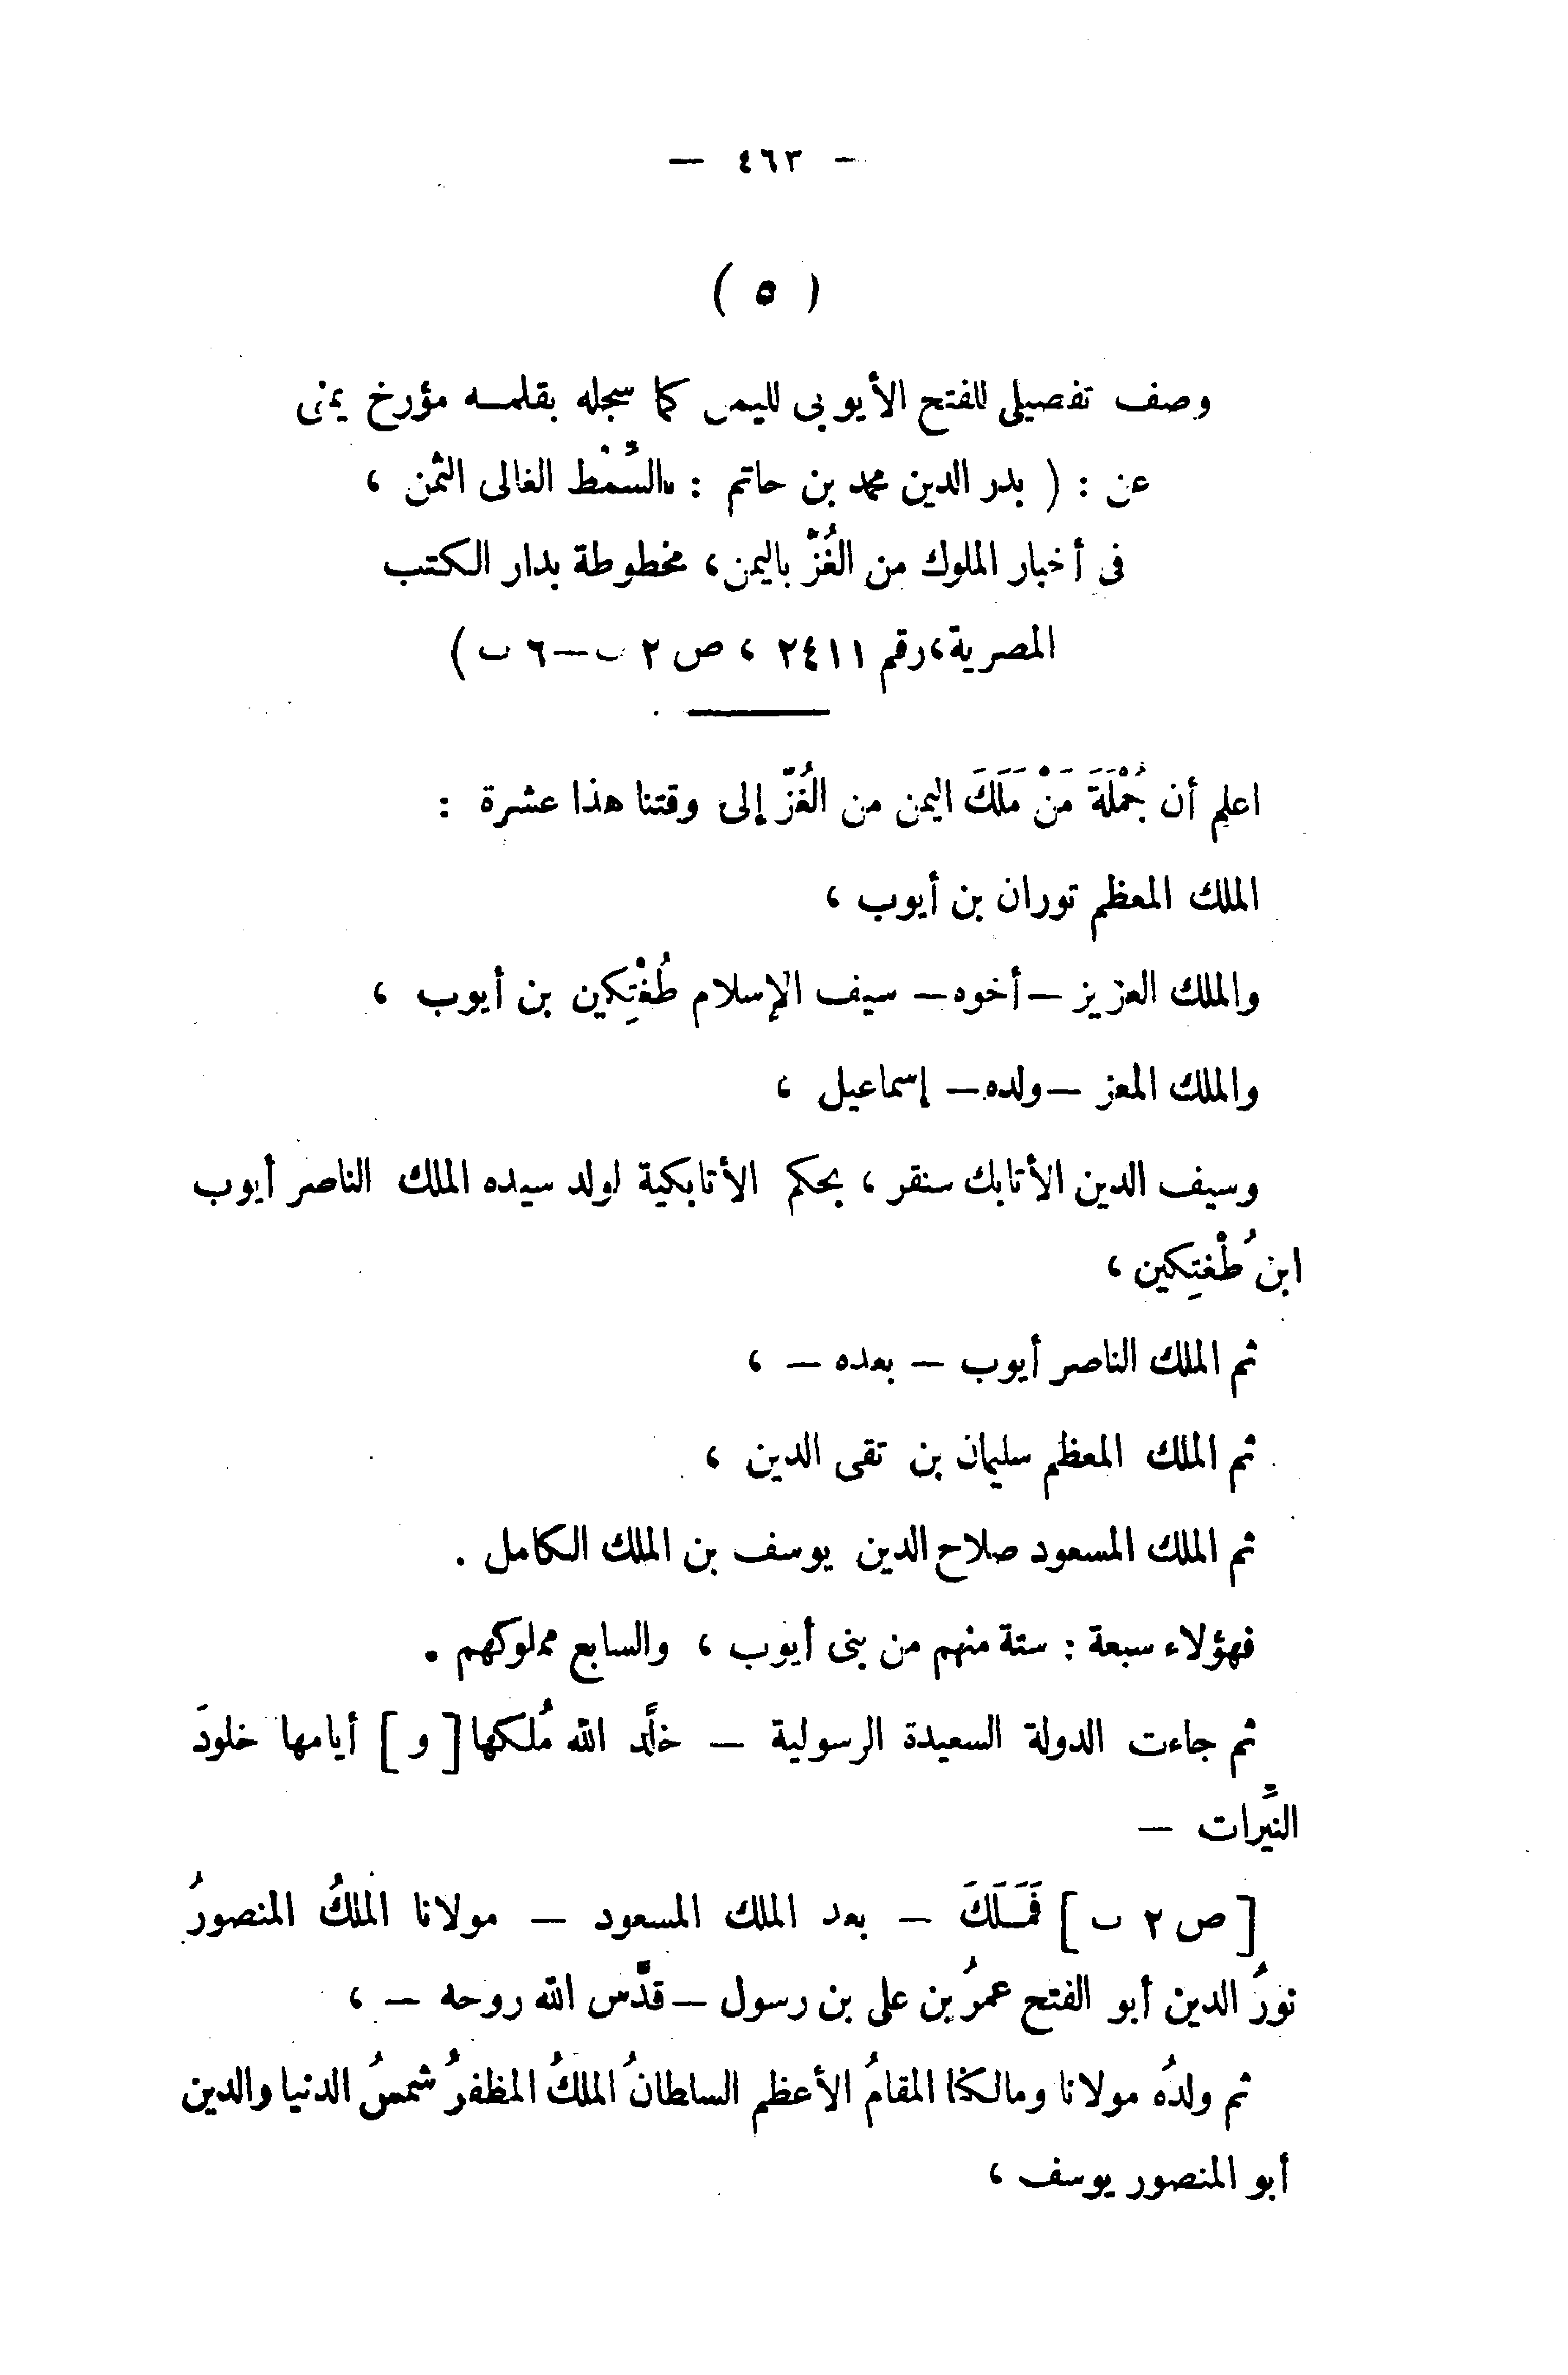 — ٤٦٣ —
( ٥ )
وصف تفصيلى للفتح الأيوبى لليمن كما سجله بقلمـه مؤرخ يمنى
عن : ( بدر الدين محمد بن حاتم : «السِّمْط الغالى الثمن ،
فى أخبار الملوك من الغُزّ باليمن، مخطوطة بدار الكتب
المصرية، رقم ٢٤١١ ، ص ٢ ب — ٦ ب )
اعلم أن جُمْلَةَ مَنْ مَلَكَ اليمن من الغُزّ إلى وقتنا هذا عشرة :
الملك المعظم توران بن أيوب ،
والملك العزيز — أخوه — سيف الإسلام طُغْتِكين بن أيوب ،
والملك المعز — ولده — إسماعيل ،
وسيف الدين الأتابك سنقر ، بحكم الأتابكية لولد سيده الملك الناصر أيوب
ابن طُغْتِكين ،
ثم الملك الناصر أيوب — بعده — ،
ثم الملك المعظم سليمان بن تقى الدين ،
ثم الملك المسعود صلاح الدين يوسف بن الملك الكامل .
فهؤلاء سبعة : ستة منهم من بنى أيوب ، والسابع مملوكهم .
ثم جاءت الدولة السعيدة الرسولية — خلَّد الله مُلكها [ و ] أيامها خلودَ
النيِّرات —
[ ص ٢ ب ] فَمَـلَكَ — بعد الملك المسعود — مولانا الملكُ المنصورُ
نورُ الدين أبو الفتح عمرُ بن على بن رسول — قدّس الله روحه — ،
ثم ولدُه مولانا ومالكنا المقامُ الأعظم السلطانُ الملكُ المظفرُ شمسُ الدنيا والدين
أبو المنصور يوسف ،